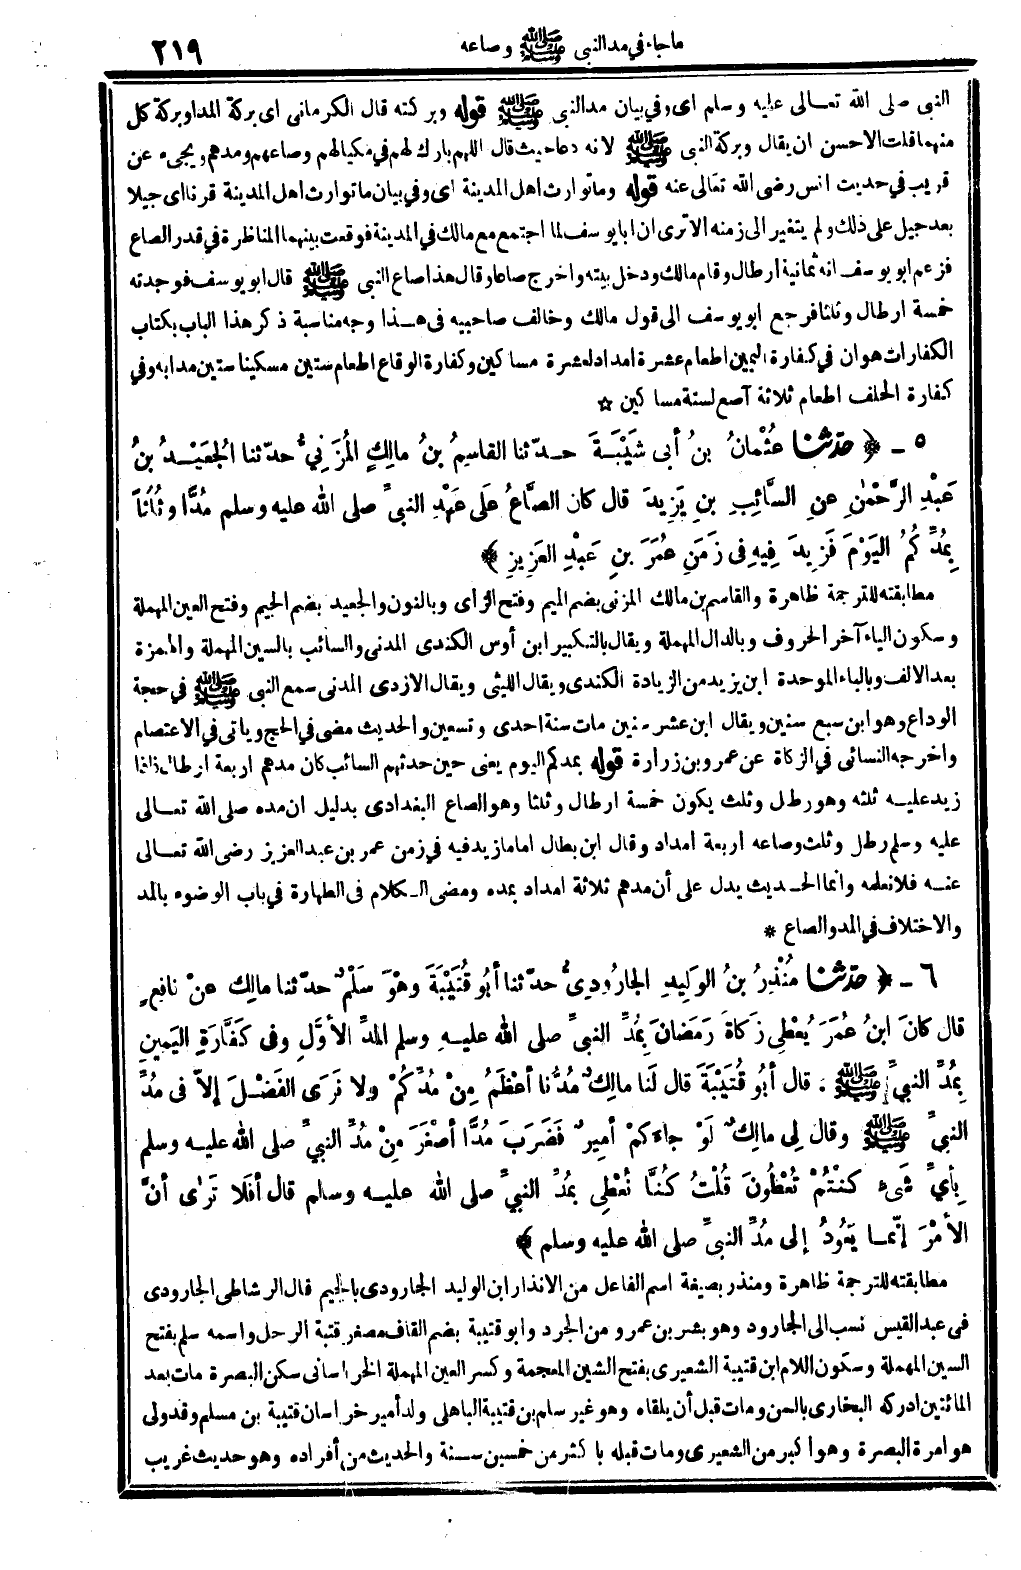 ماجاء في مد النبي ﷺ وصاعه ٢١٩
النبي صلى الله تعالى عليه وسلم اى وفي بيان مد النبي ﷺ قوله وبركته قال الكرماني اى بركة المد او بركة كل
منهما قلت الاحسن ان يقال وبركة النبي ﷺ لانه دعا حيث قال اللهم بارك لهم في مكيالهم وصاعهم ومدهم ويجىء عن
قريب في حديث انس رضى الله تعالى عنه قوله وما توارث اهل المدينة اى وفي بيان ما توارث اهل المدينة قرنا اى جيلا
بعد جيل على ذلك ولم يتغير الى زمنه الا ترى ان ابا يوسف لما اجتمع مع مالك في المدينة فوقعت بينهما المناظرة في قدر الصاع
فزعم ابو يوسف انه ثمانية أرطال وقام مالك ودخل بيته واخرج صاعا وقال هذا صاع النبي ﷺ قال ابو يوسف فوجدته
خمسة ارطال وثلثا فرجع ابو يوسف الى قول مالك وخالف صاحبيه في هذا وجه مناسبة ذكر هذا الباب بكتاب
الكفارات هو ان في كفارة اليمين اطعام عشرة امداد لعشرة مساكين وكفارة الوقاع اطعام ستين مسكينا ستين مدا به وفي
كفارة الحلف اطعام ثلاثة آصع لستة مساكين ☆
٥ - ﴿ حدثنا عُثْمانُ بنُ أبى شَيْبَةَ حدّثنا القاسِمُ بنُ مالِكٍ المُزَنِيُّ حدّثنا الجُعَيْدُ بنُ
عَبْدِ الرَّحْمٰنِ عنِ السَّائِبِ بنِ يَزِيدَ قال كان الصَّاعُ عَلَى عَهْدِ النبيِّ صلى الله عليه وسلم مُدًّا وثُلُثاً
بِمُدِّكُمُ اليَوْمَ فَزِيدَ فِيهِ فى زَمَنِ عُمَرَ بنِ عَبْدِ العَزِيزِ ﴾
مطابقته للترجمة ظاهرة والقاسم بن مالك المزنى بضم الميم وفتح الزاى وبالنون والجعيد بضم الجيم وفتح العين المهملة
وسكون الياء آخر الحروف وبالدال المهملة ويقال بالتكبير ابن أوس الكندى المدنى والسائب بالسين المهملة والهمزة
بعد الالف وبالباء الموحدة ابن يزيد من الزيادة الكندى ويقال الليثى ويقال الازدى المدنى سمع النبي ﷺ في حجة
الوداع وهو ابن سبع سنين ويقال ابن عشر سنين مات سنة احدى وتسعين والحديث مضى في الحج وياتى في الاعتصام
واخرجه النسائى في الزكاة عن عمرو بن زرارة قوله بمدكم اليوم يعنى حين حدثهم السائب كان مدهم اربعة ارطال فاذا
زيد عليه ثلثه وهو رطل وثلث يكون خمسة ارطال وثلثا وهو الصاع البغدادى بدليل ان مده صلى الله تعالى
عليه وسلم رطل وثلث وصاعه اربعة امداد وقال ابن بطال اما ما زيد فيه في زمن عمر بن عبد العزيز رضى الله تعالى
عنه فلا نعلمه وانما الحديث يدل على أن مدهم ثلاثة امداد بمده ومضى الكلام فى الطهارة في باب الوضوء بالمد
والاختلاف في المد والصاع *
٦ - ﴿ حدثنا مُنْذِرُ بنُ الوَلِيدِ الجارُودِىُّ حدّثنا أبُو قُتَيْبَةَ وهْوَ سَلْمٌ حدّثنا مالِك عنْ نافِعٍ
قال كانَ ابنُ عُمَرَ يُعْطِي زَكاةَ رَمَضانَ بِمُدِّ النبيِّ صلى الله عليه وسلم المُدِّ الأوَّلِ وفى كَفَّارَةِ اليَمِينِ
بِمُدِّ النبيِّ ﷺ . قال أبُو قُتَيْبَةَ قال لَنا مالِكٌ مُدُّنا أعْظَمُ مِنْ مُدِّكُمْ ولا نَرَى الفَضْلَ إلاّ فى مُدِّ
النبيِّ ﷺ وقال لِى مالِكٌ لَوْ جاءَكمْ أمِيرٌ فَضَرَبَ مُدًّا أصْغَرَ مِنْ مُدِّ النبيِّ صلى الله عليه وسلم
بِأيِّ شَىْء كُنْتُمْ تُعْطُونَ قُلْتُ كُنَّا نُعْطِى بِمُدِّ النبيِّ صلى الله عليه وسلم قال أفَلا تَرَى أنَّ
الأمْرَ إنّما يَعُودُ إلى مُدِّ النبيِّ صلى الله عليه وسلم ﴾
مطابقته للترجمة ظاهرة ومنذر بصيغة اسم الفاعل من الانذار ابن الوليد الجارودى بالجيم قال الرشاطى الجارودى
فى عبد القيس نسب الى الجارود وهو بشر بن عمرو من الجرد وابو قتيبة بضم القاف مصغر قتبة الرحل واسمه سلم بفتح
السين المهملة وسكون اللام ابن قتيبة الشعيرى بفتح الشين المعجمة وكسر العين المهملة الخراسانى سكن البصرة مات بعد
المائتين ادركه البخارى بالسن ومات قبل أن يلقاه وهو غير سلم بن قتيبة الباهلى ولد أمير خراسان قتيبة بن مسلم وقد ولى
هو امرة البصرة وهو اكبر من الشعيرى ومات قبله باكثر من خمسين سنة والحديث من أفراده وهو حديث غريب